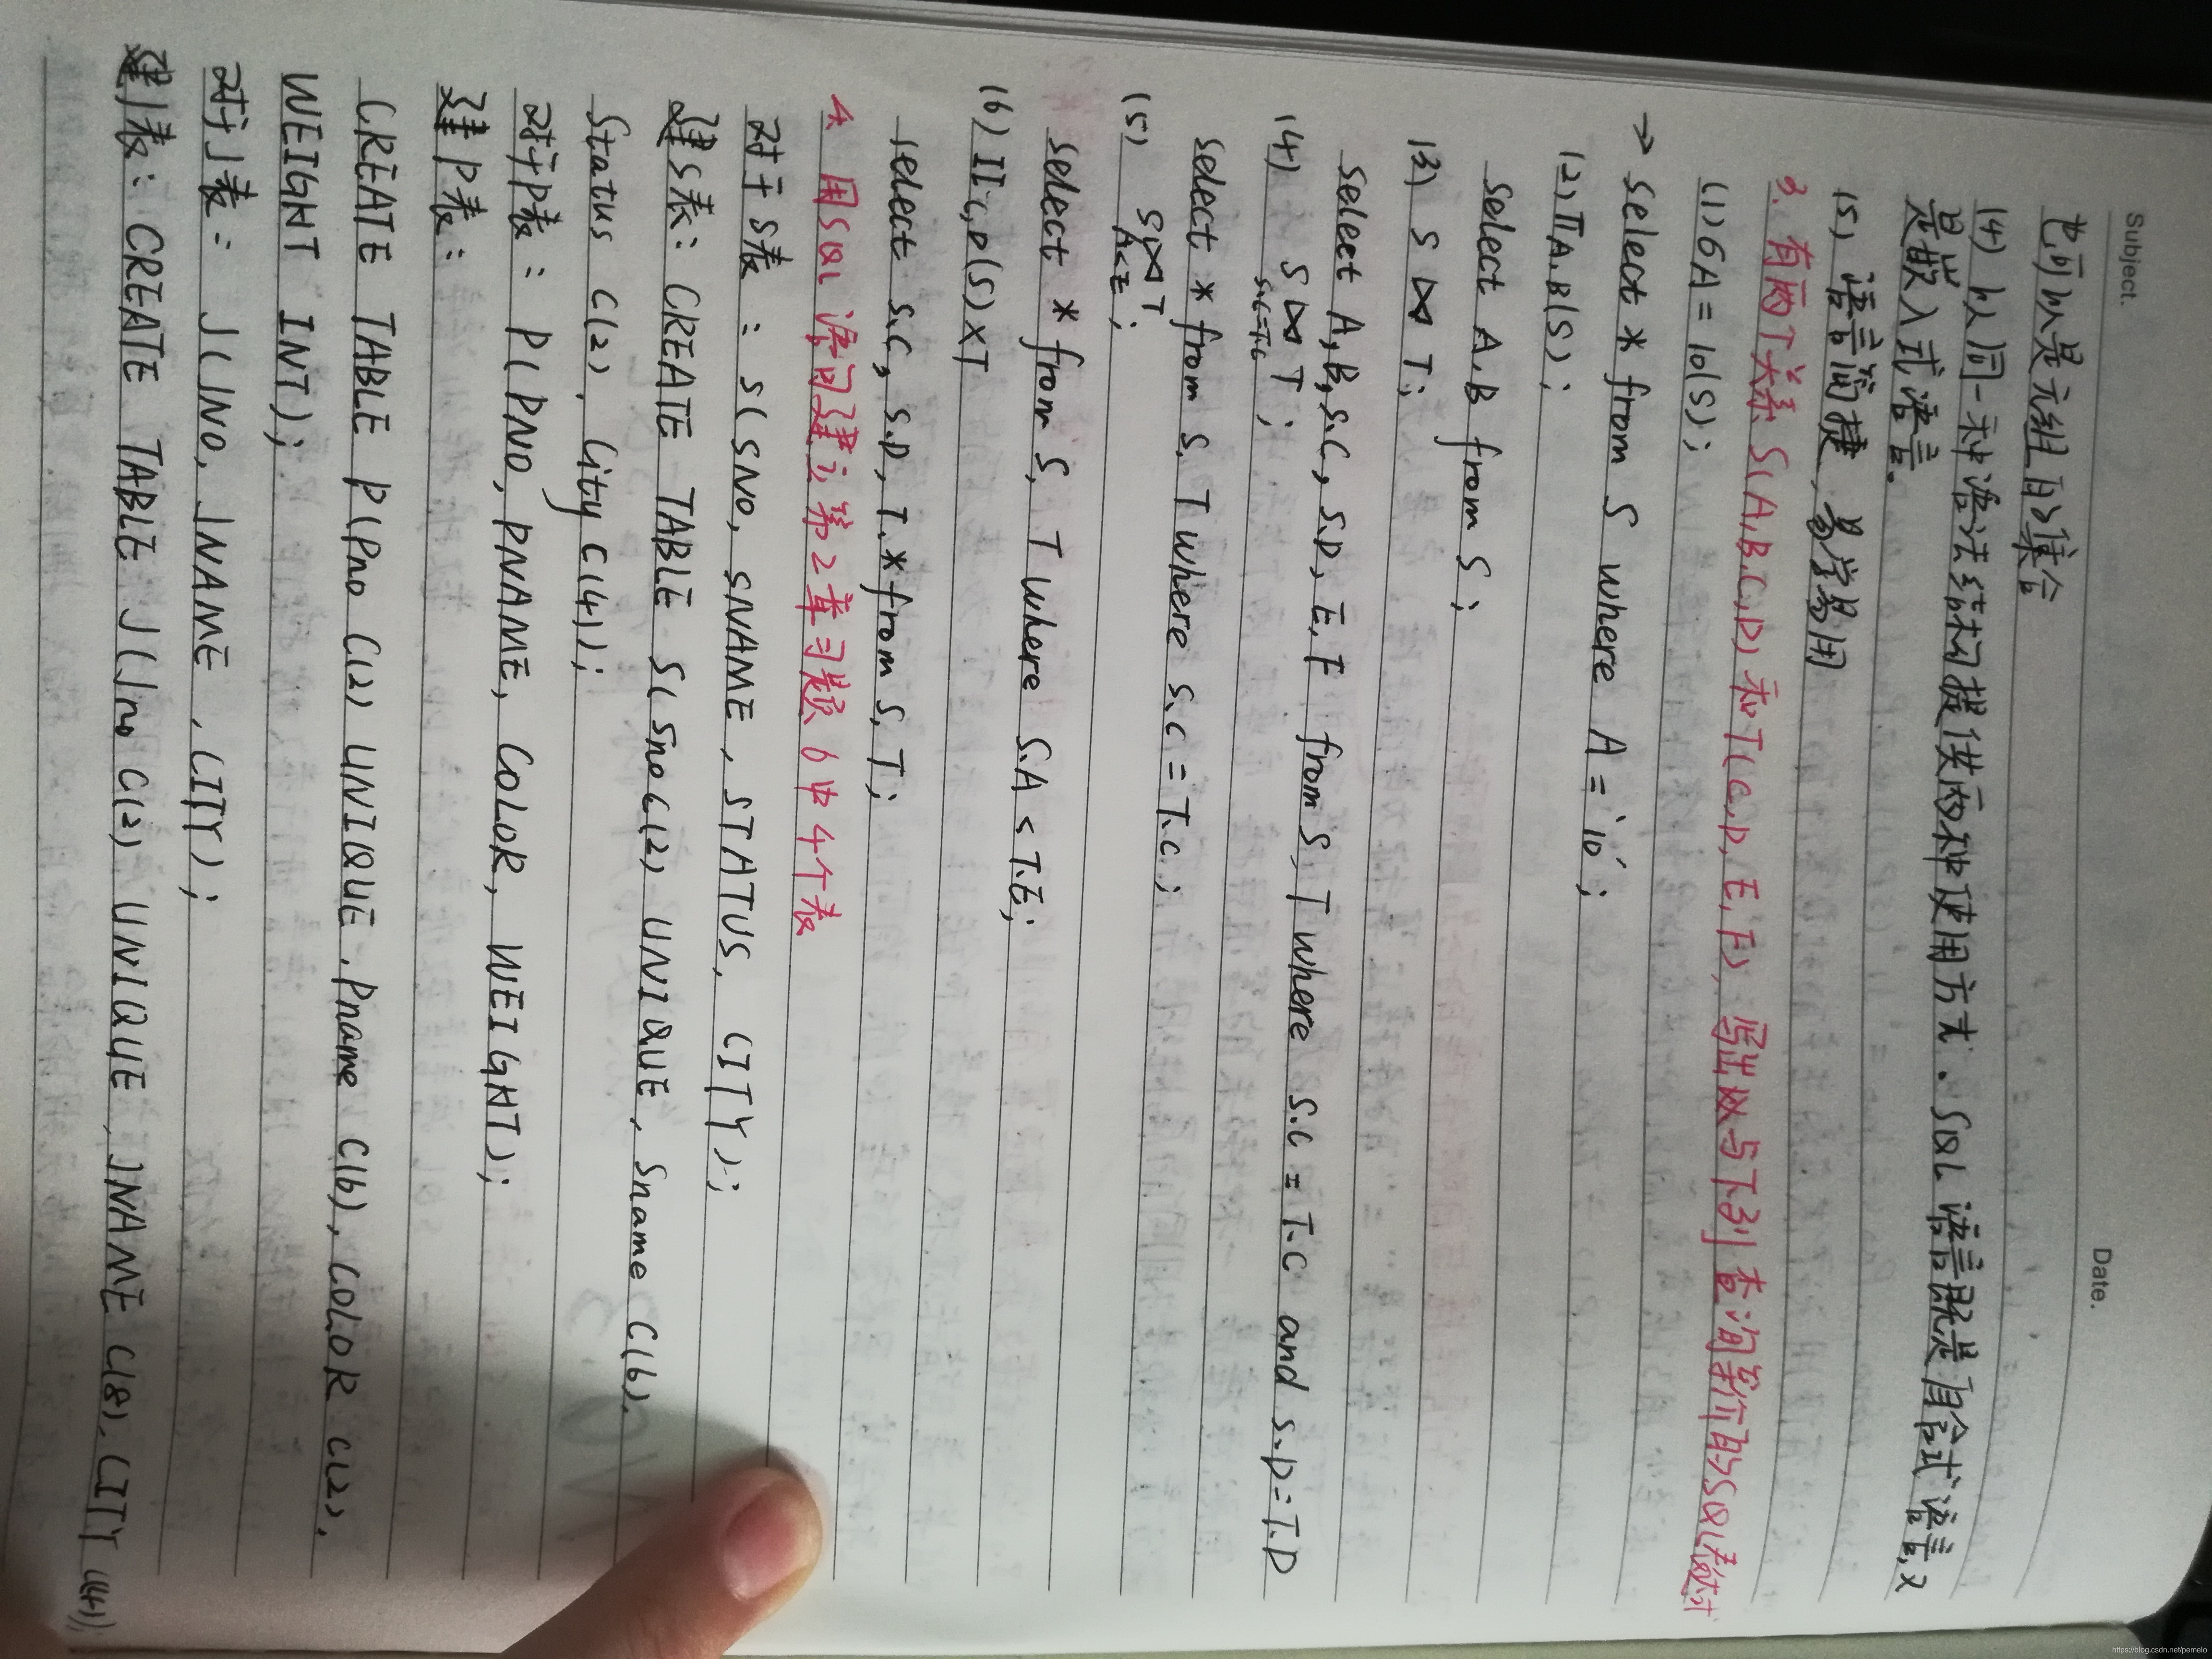 Subject.
Date.
也可以是元组的集合
(4) 以同一种语法结构提供两种使用方式. SQL 语言既是自含式语言,又
是嵌入式语言。
(5) 语言简捷, 易学易用
3. 有两个关系 S(A,B,C,D) 和T(C,D,E,F), 写出与下列查询等价的SQL表达式
(1) σA=10(S);
→ select * from S where A='10';
(2) ΠA,B(S);
select A,B from S;
(3) S ⋈ T;
select A,B,S.C, S.D, E,F from S,T where S.C = T.C and S.D=T.D
(4) S ⋈ T ;
S.C=T.C
select * from S,T where S.C = T.C ;
(5) S ⋈ T ;
A<E
select * from S, T where S.A < T.E;
(6) ΠC,D(S)×T
select S.C, S.D, T.* from S,T;
4 用SQL 语句建立第2章习题6中4个表
对于 S表 : S(SNO, SNAME, STATUS, CITY);
建S表: CREATE TABLE S(Sno C(2) UNIQUE, Sname C(6),
Status C(2), City C(4));
对于P表: P(PNO, PNAME, COLOR, WEIGHT);
建P表:
CREATE TABLE P(Pno C(2) UNIQUE, Pname C(6), COLOR C(2),
WEIGHT INT);
对于J表: J(JNO, JNAME, CITY);
建J表: CREATE TABLE J(Jno C(2) UNIQUE, JNAME C(8), CITY C(4))
https://blog.csdn.net/pemelo